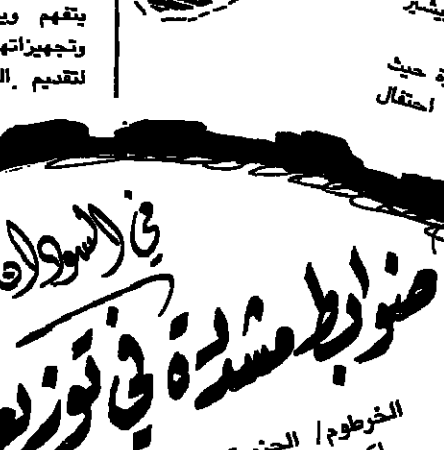 يتفهم
وتجهيزاتها
لتقديم
حيث
احتفال
في السودان
ضوابط مشددة في توزيع
الخرطوم/